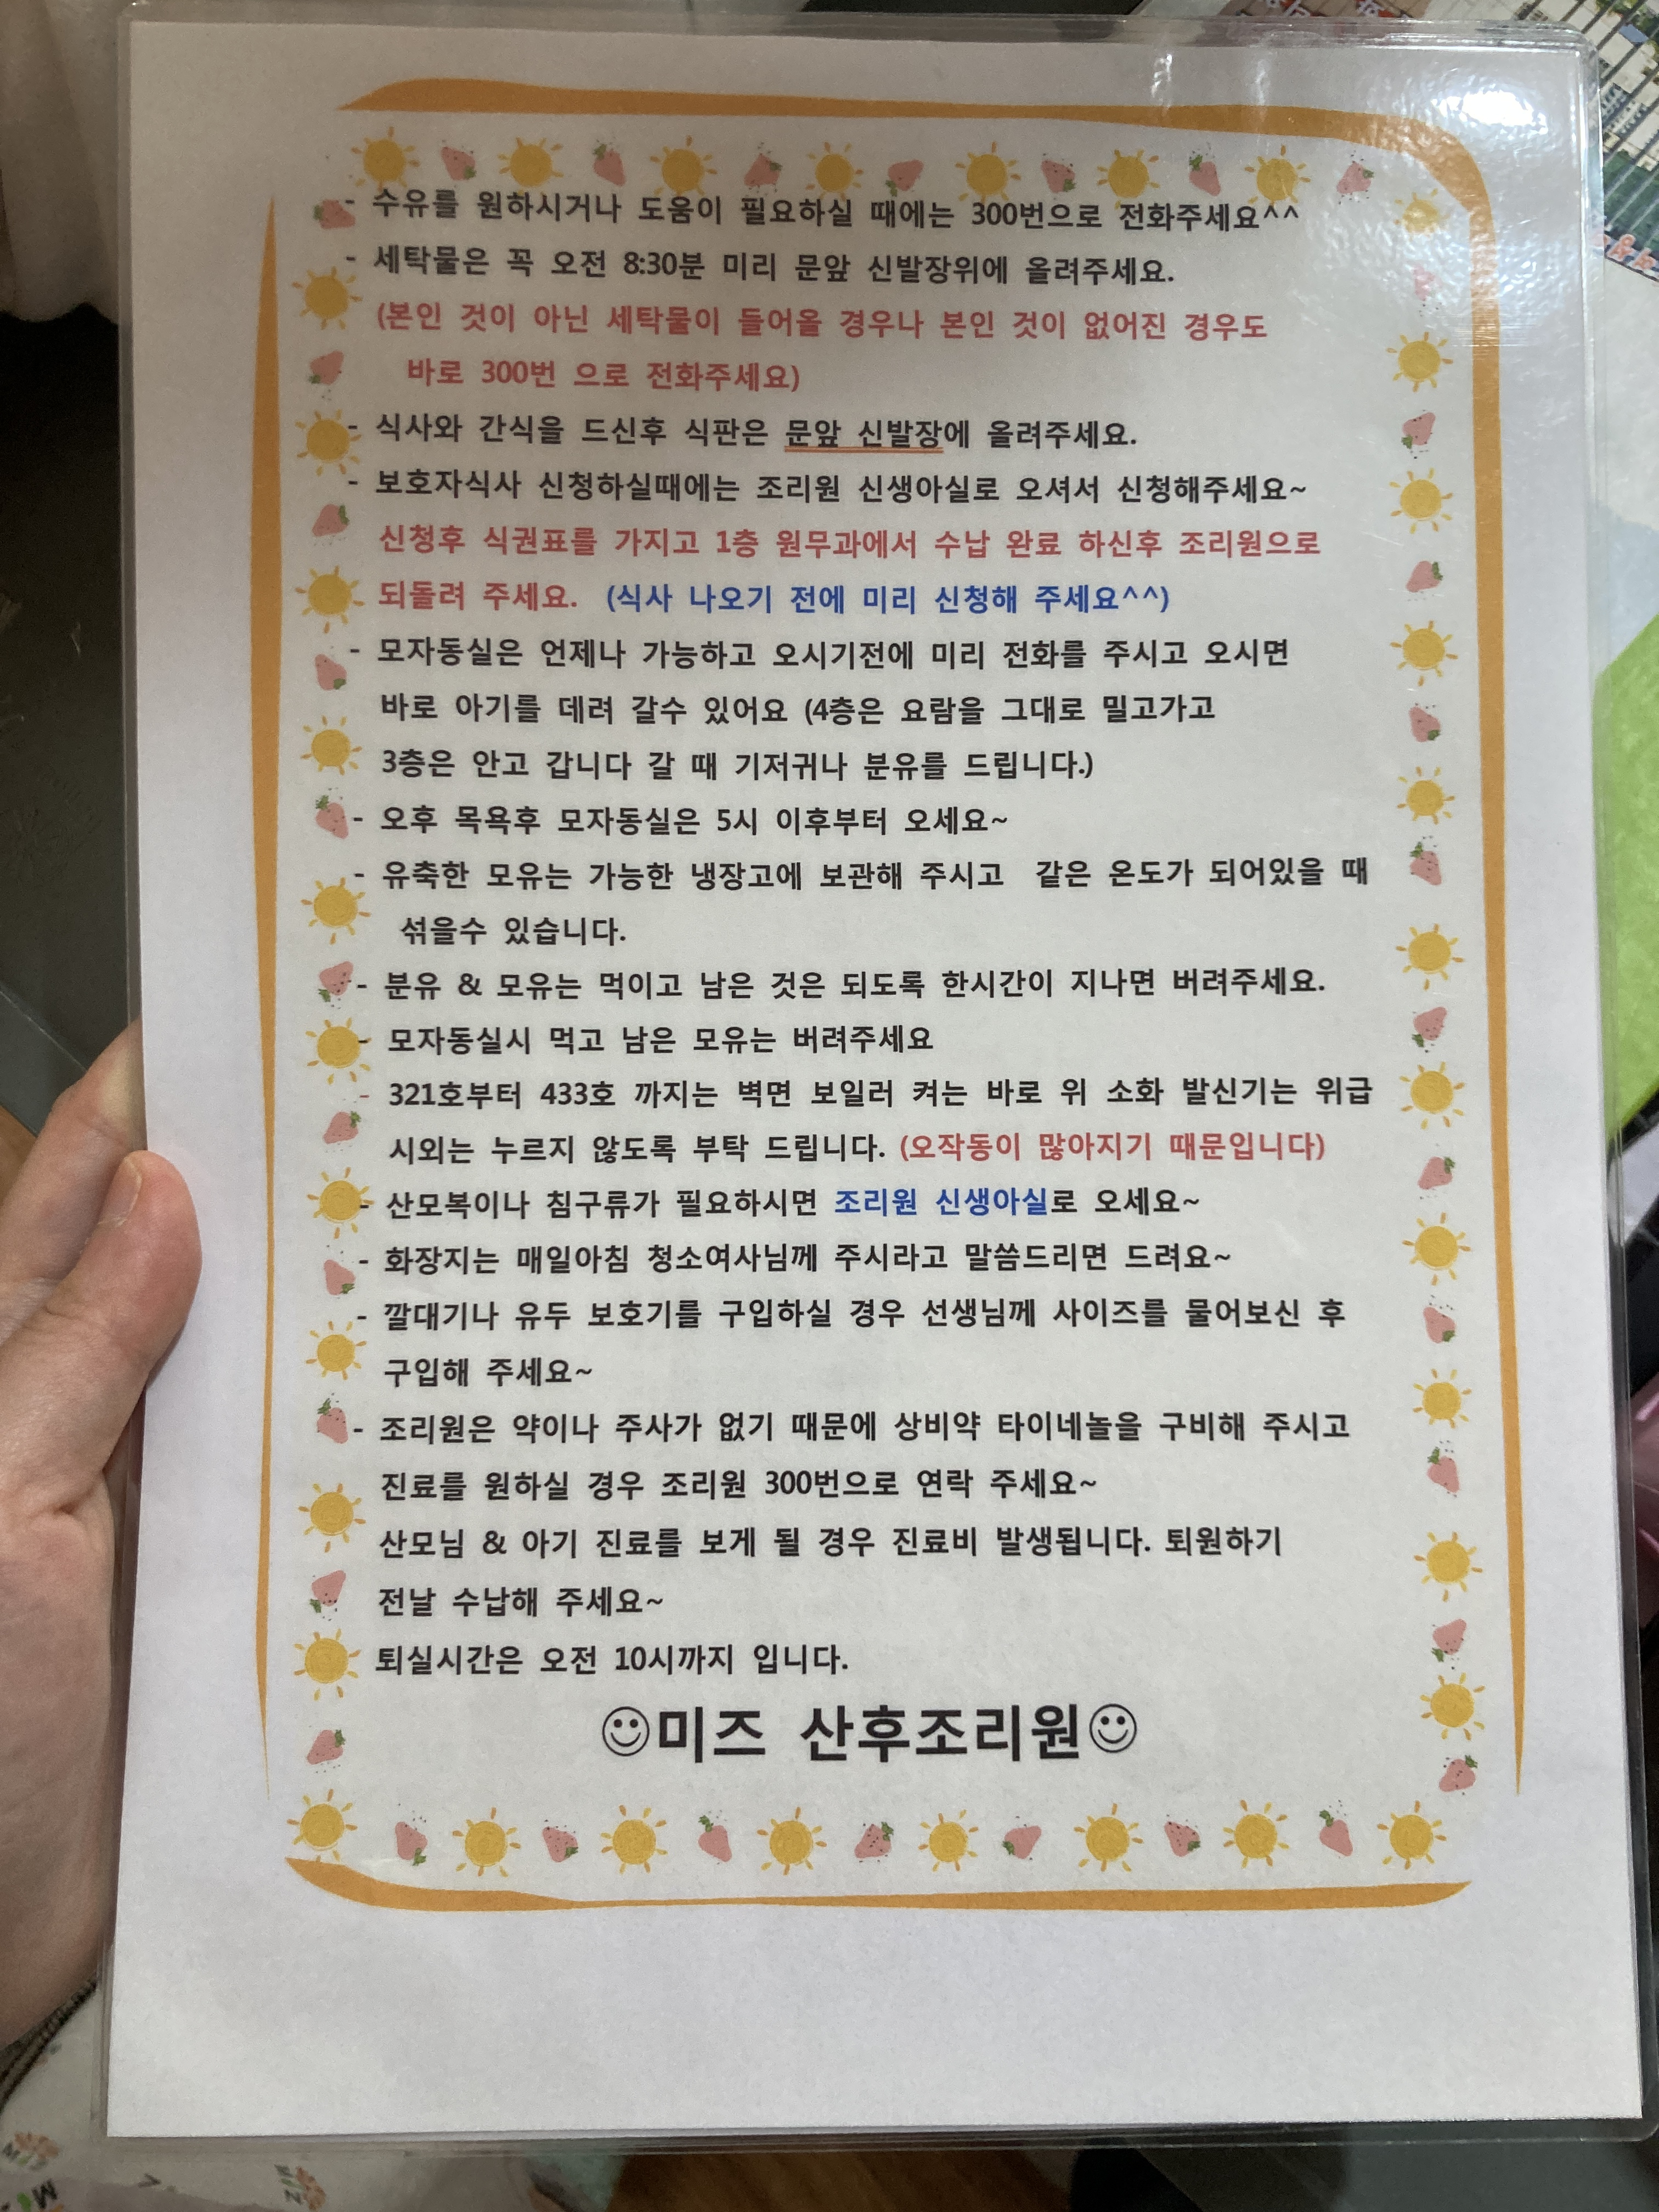 - 수유를 원하시거나 도움이 필요하실 때에는 300번으로 전화주세요^^
- 세탁물은 꼭 오전 8:30분 미리 문앞 신발장위에 올려주세요.
(본인 것이 아닌 세탁물이 들어올 경우나 본인 것이 없어진 경우도
바로 300번 으로 전화주세요)
- 식사와 간식을 드신후 식판은 문앞 신발장에 올려주세요.
- 보호자식사 신청하실때에는 조리원 신생아실로 오셔서 신청해주세요~
신청후 식권표를 가지고 1층 원무과에서 수납 완료 하신후 조리원으로
되돌려 주세요. (식사 나오기 전에 미리 신청해 주세요^^)
- 모자동실은 언제나 가능하고 오시기전에 미리 전화를 주시고 오시면
바로 아기를 데려 갈수 있어요 (4층은 요람을 그대로 밀고가고
3층은 안고 갑니다 갈 때 기저귀나 분유를 드립니다.)
- 오후 목욕후 모자동실은 5시 이후부터 오세요~
- 유축한 모유는 가능한 냉장고에 보관해 주시고 같은 온도가 되어있을 때
섞을수 있습니다.
- 분유 & 모유는 먹이고 남은 것은 되도록 한시간이 지나면 버려주세요.
- 모자동실시 먹고 남은 모유는 버려주세요
- 321호부터 433호 까지는 벽면 보일러 켜는 바로 위 소화 발신기는 위급
시외는 누르지 않도록 부탁 드립니다. (오작동이 많아지기 때문입니다)
- 산모복이나 침구류가 필요하시면 조리원 신생아실로 오세요~
- 화장지는 매일아침 청소여사님께 주시라고 말씀드리면 드려요~
- 깔대기나 유두 보호기를 구입하실 경우 선생님께 사이즈를 물어보신 후
구입해 주세요~
- 조리원은 약이나 주사가 없기 때문에 상비약 타이네놀을 구비해 주시고
진료를 원하실 경우 조리원 300번으로 연락 주세요~
산모님 & 아기 진료를 보게 될 경우 진료비 발생됩니다. 퇴원하기
전날 수납해 주세요~
퇴실시간은 오전 10시까지 입니다.
☺미즈 산후조리원☺